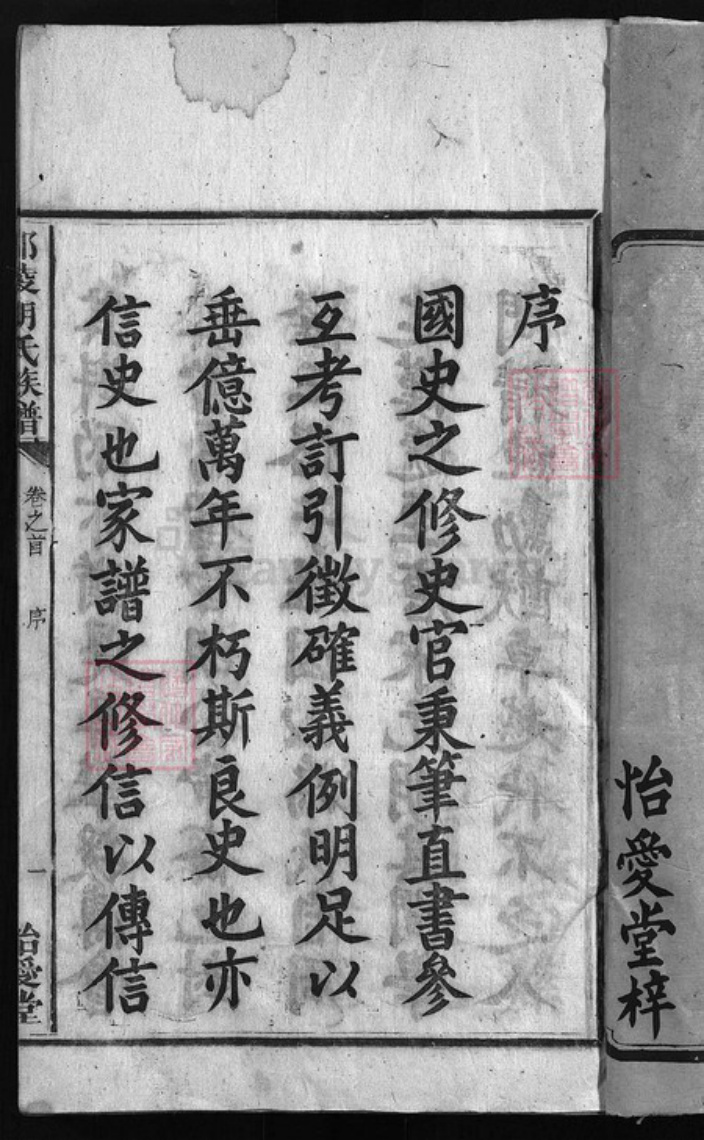 怡愛堂梓
序
國史之修史官秉筆直書參
互考訂引徵確義例明足以
垂億萬年不朽斯良史也亦
信史也家譜之修信以傳信
氏族譜
卷之首
序
一
怡愛堂